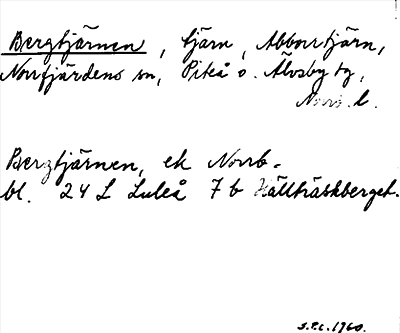 Bergtjärnen, tjärn, Abborrtjärn,
Norrfjärdens sn, Piteå o. Älvsby tg,
Norrb. l.
Bergtjärnen, ek Norrb.
bl. 24 L Luleå 7 b Hällträskberget.
S.P.L. 1960.